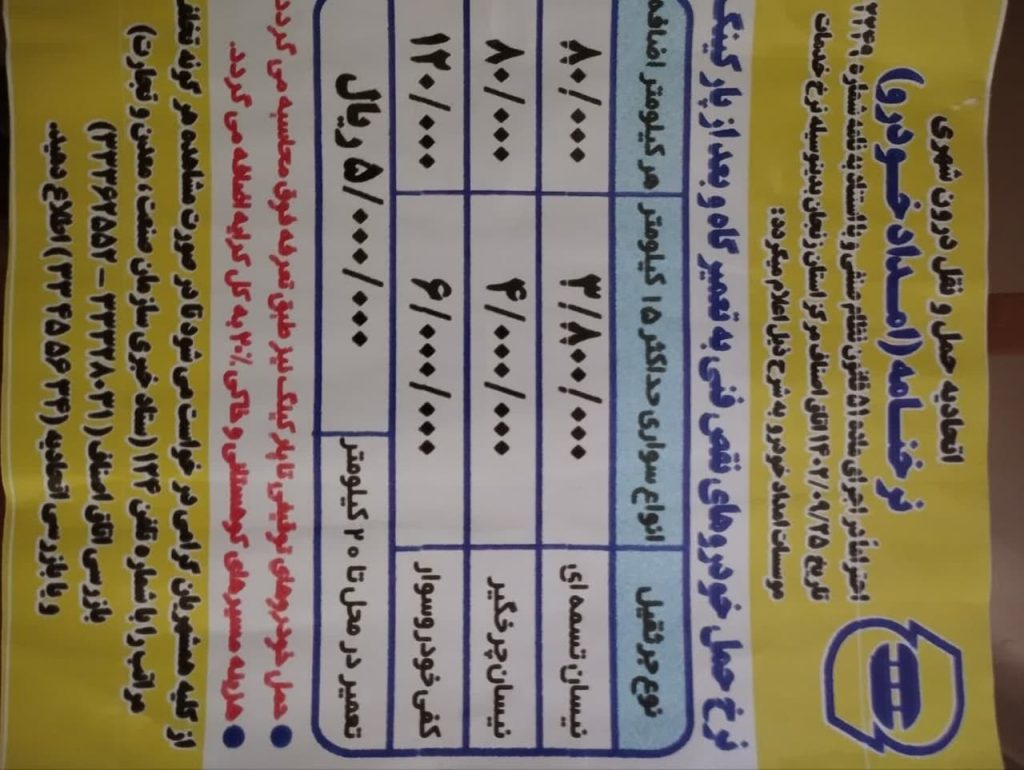 اتحادیه حمل و نقل درون شهری
نرخنامه (امداد خودرو)
احتراماً در اجرای ماده ۵۱ قانون نظام صنفی و با استناد به نامه شماره
تاریخ ۱۴۰۲/۰۹/۲۵ اتاق اصناف مرکز استان زنجان بدینوسیله نرخ خدمات
موسسات امداد خودرو به شرح ذیل اعلام میگردد:
نرخ حمل خودروهای نقص فنی به تعمیر گاه و بعد از پارکینگ
نوع جرثقیل انواع سواری حداکثر ۱۵ کیلومتر هر کیلومتر اضافه
نیسان تسمه ای ۳/۸۰۰/۰۰۰ ۸۰/۰۰۰
نیسان چرخگیر ۴/۰۰۰/۰۰۰ ۸۰/۰۰۰
کفی خودروسوار ۶/۰۰۰/۰۰۰ ۱۲۰/۰۰۰
تعمیر در محل تا ۲۰ کیلومتر ۵/۰۰۰/۰۰۰ ریال
● حمل خودروهای توقیفی تا پارکینگ نیز طبق تعرفه فوق محاسبه می گردد
● هزینه مسیرهای کوهستانی و خاکی ۲۰٪ به کل کرایه اضافه می گردد.
از کلیه همشهریان گرامی در خواست می شود تا در صورت مشاهده هر گونه تخلف
مراتب را با شماره تلفن ۱۲۴ (ستاد خبری سازمان صنعت، معدن و تجارت)
بازرسی اتاق اصناف (۳۳۳۷۸۰۳۱ – ۳۳۳۶۷۵۵۲)
و یا بازرسی اتحادیه اطلاع دهید.